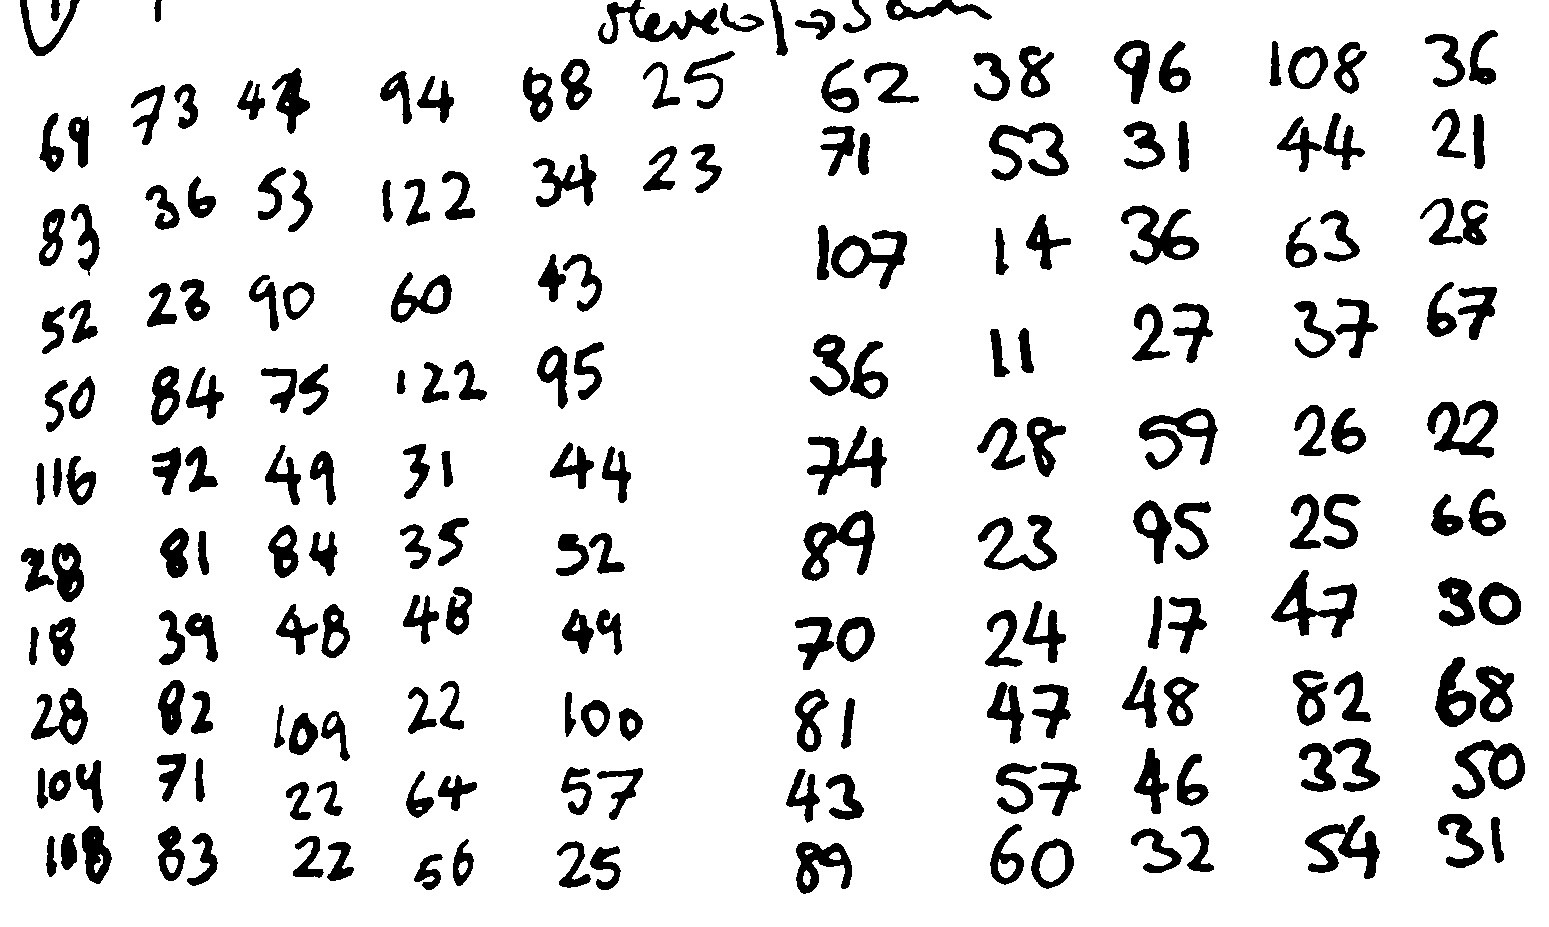 69 73 94 88 25 62 38 96 108 36
83 36 53 122 34 23 71 53 31 44 21
52 23 90 60 43 107 14 36 63 28
50 84 75 122 95 36 11 27 37 67
116 72 49 31 44 74 28 59 26 22
28 81 84 35 52 89 23 95 25 66
18 39 48 48 49 70 24 17 47 30
28 82 109 22 100 81 47 48 82 68
104 71 22 64 57 43 57 46 33 50
83 22 56 25 89 60 32 54 31